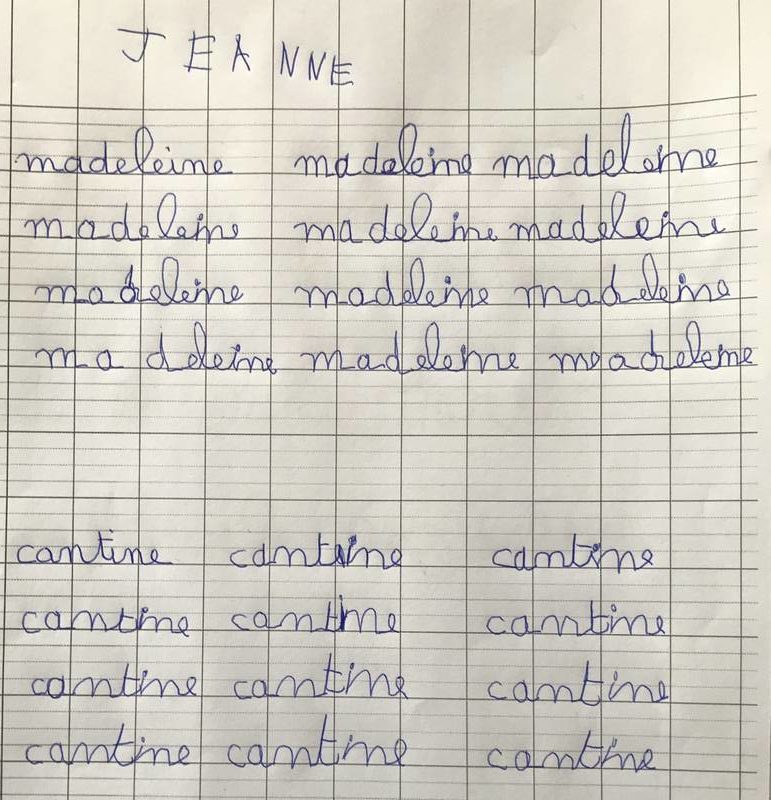 JEANNE
madeleine madeleine madeleine
madeleine madeleine madeleine
madeleine madeleine madeleine
ma deleine madeleine meadeleine
cantine cantine cantine
cantine cantine cantine
cantine cantine cantine
cantine cantine cantine